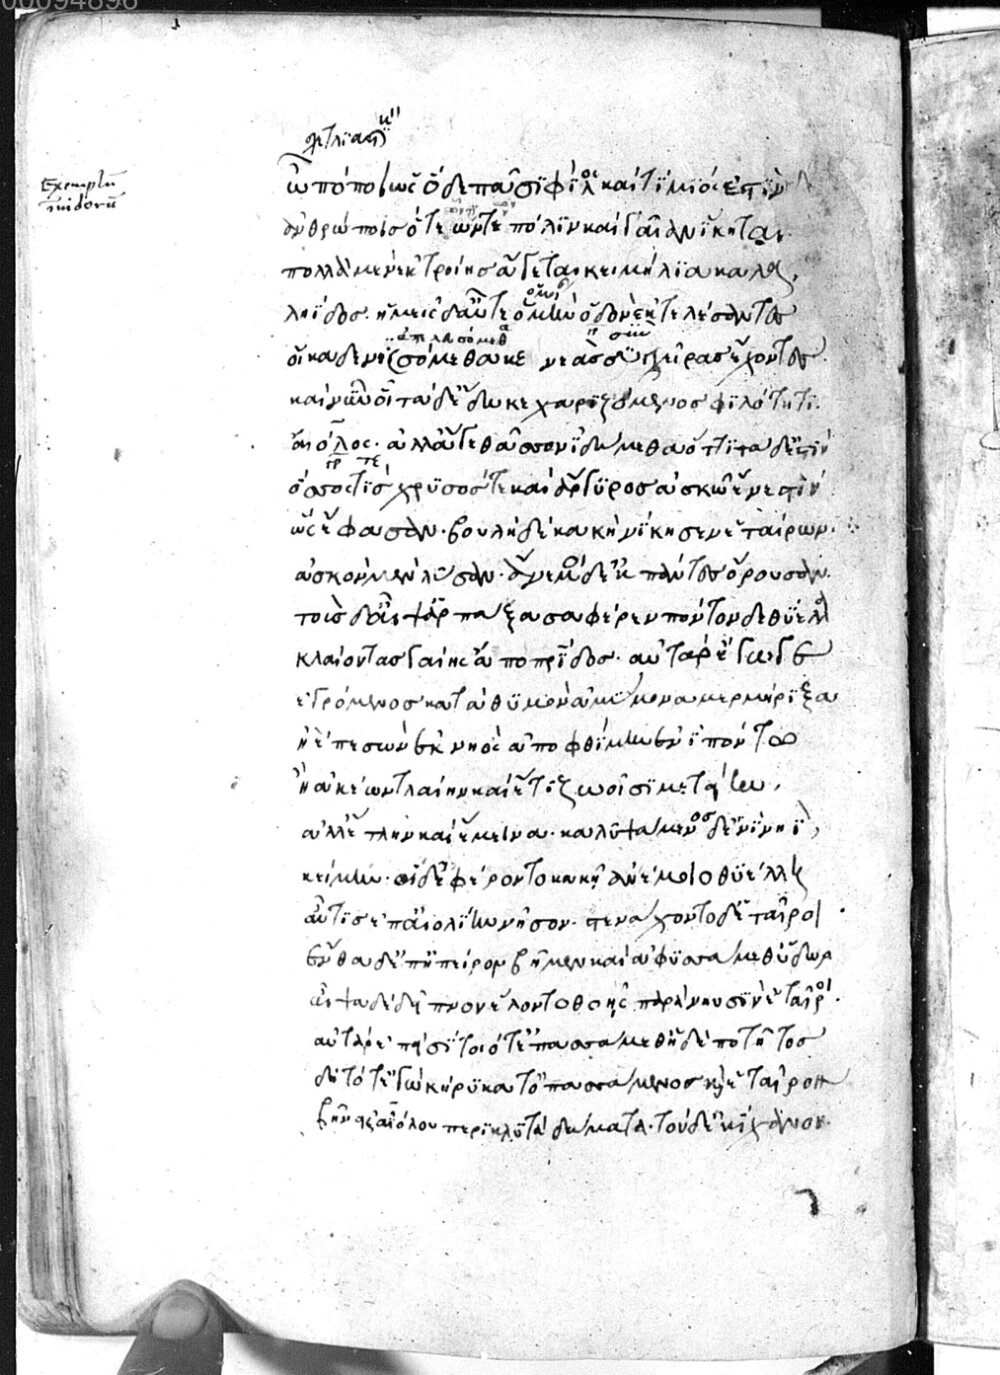 00094896
Exemplũ
inidorũ
ὢ πόποι ὡς ὅδε πᾶσϊ φίλος καὶ τίμϊός ἐστϊν
ἀνθρώποις ὅτε ὧντε πόλϊν καὶ γαῖαν ἵκηται.
πολλὰ μὲν ἐκ τροίης ἄγεται κειμήλϊα καλὰ,
ληΐδος. ἡμεῖς δ' αὖτε ὁμὴν ὁδὸν ἐκτελέσαντες
ἀπενισόμεθα
οἴκαδε νισσόμεθα κενεὰς σὺν χεῖρας ἔχοντες.
καὶ νῦν οἱ τά δέδωκε χαρϊζόμενος φϊλότητϊ.
αἴολος. ἀλλ' ἄγε θᾶσσον ἰδώμεθα ὅττϊ τάδ' ἐστίν
ὅσσος τϊς χρϋσός τε καὶ ἄργϋρος ἀσκῷ ἔνεστϊν
ὣς ἔφασαν. βουλὴ δὲ κακὴ νίκησεν ἑταίρων.
ἀσκὸν μὲν λῦσαν. ἄνεμοι δ' ἐκ πάντες ὄρουσαν.
τοὺς δ' αἶψ' ἁρπάξασα φέρεν πόντον δὲ θύελλα
κλαίοντας γαίης ἄπο πατρΐδος. αὐτὰρ ἔγωγε
ἐγρόμενος κατὰ θϋμὸν ἀμύμονα μερμήρϊξα
ἠὲ πεσὼν ἐκ νηὸς ἀποφθίμην ἐνὶ πόντω
ἢ ἀκέων τλαίην καὶ ἔτι ζωοῖσϊ μετείην,
ἀλλ' ἔτλην καὶ ἔμεινα. καλυψάμενος δ' ἐνὶ νηῒ,
κείμην. αἱ δ' ἐφέροντο κακῇ ἀνέμοιο θϋέλλῃ
αὖτϊς ἐπ' αἰολΐην νῆσον. στενάχοντο δ' ἑταῖροι
ἔνθα δ' ἐπ' ἠπείρου βῆμεν καὶ ἀφϋσσάμεθ' ὕδωρ
αἶψα δὲ δεῖπνον ἕλοντο θοῇς παρὰ νηυσὶν ἑταῖροι.
αὐτὰρ ἐπεὶ σΐτοιό τ' ἐπασσάμεθ' ἠδὲ ποτῆτος
δὴ τότ' ἐγὼ κήρϋκα τ' ὀπασσάμενος καὶ ἑταῖρον
βῆν εἰς αἰόλου περϊκλϋτὰ δώματα. τὸν δ' ἐκίχανον.